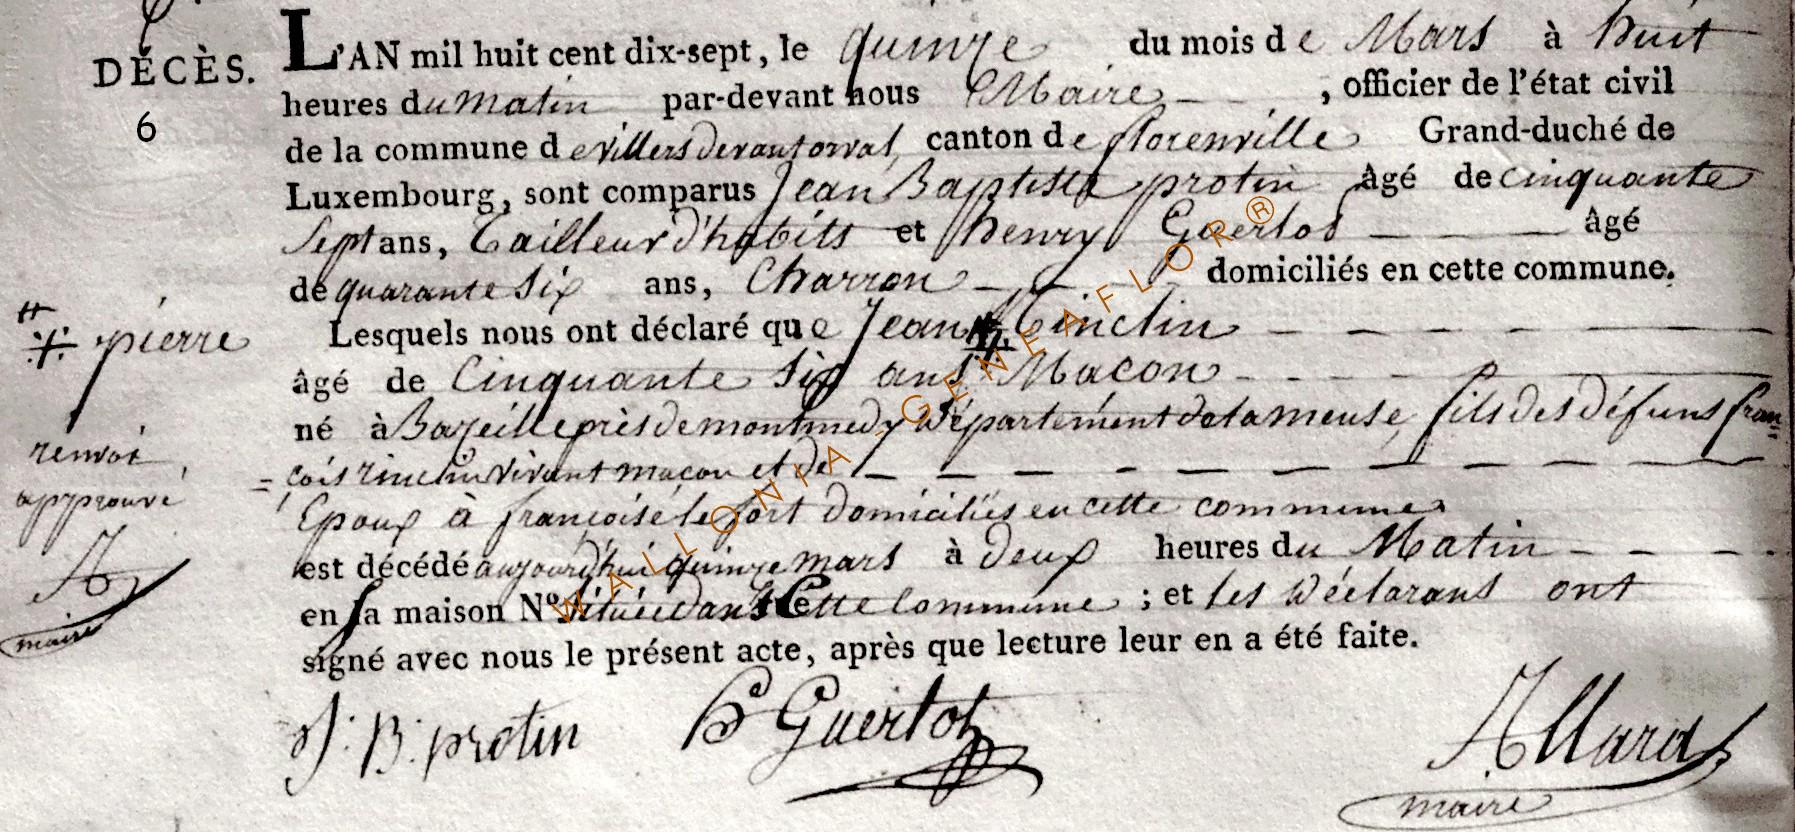 DÉCÈS.
6
L'AN mil huit cent dix-sept, le quinze du mois de Mars à huit
heures du matin par-devant nous Maire, officier de l'état civil
de la commune de villers devant orval, canton de florenville Grand-duché de
Luxembourg, sont comparus Jean Baptiste protin âgé de cinquante
Sept ans, Tailleur d'habits et henry Guerlot âgé
de quarante Six ans, Charron domiciliés en cette commune.
Lesquels nous ont déclaré que Jean Tinclin
âgé de Cinquante Six ans Macon
né à Bazeille près de montmedy Département de la meuse, fils des défuns fran=
=cois tinclin vivant macon et de
Epoux à françoise le fort domiciliés en cette commune
est décédé aujourd'hui quinze mars à deux heures du Matin
en sa maison Nº située dans Cette Commune ; et les Déclarans ont
signé avec nous le présent acte, après que lecture leur en a été faite.
pierre
renvoi
approuvé
A
maire
J: B: protin
h Guerlot
Allard
maire
WALLONIA - GENEAFLOR ®